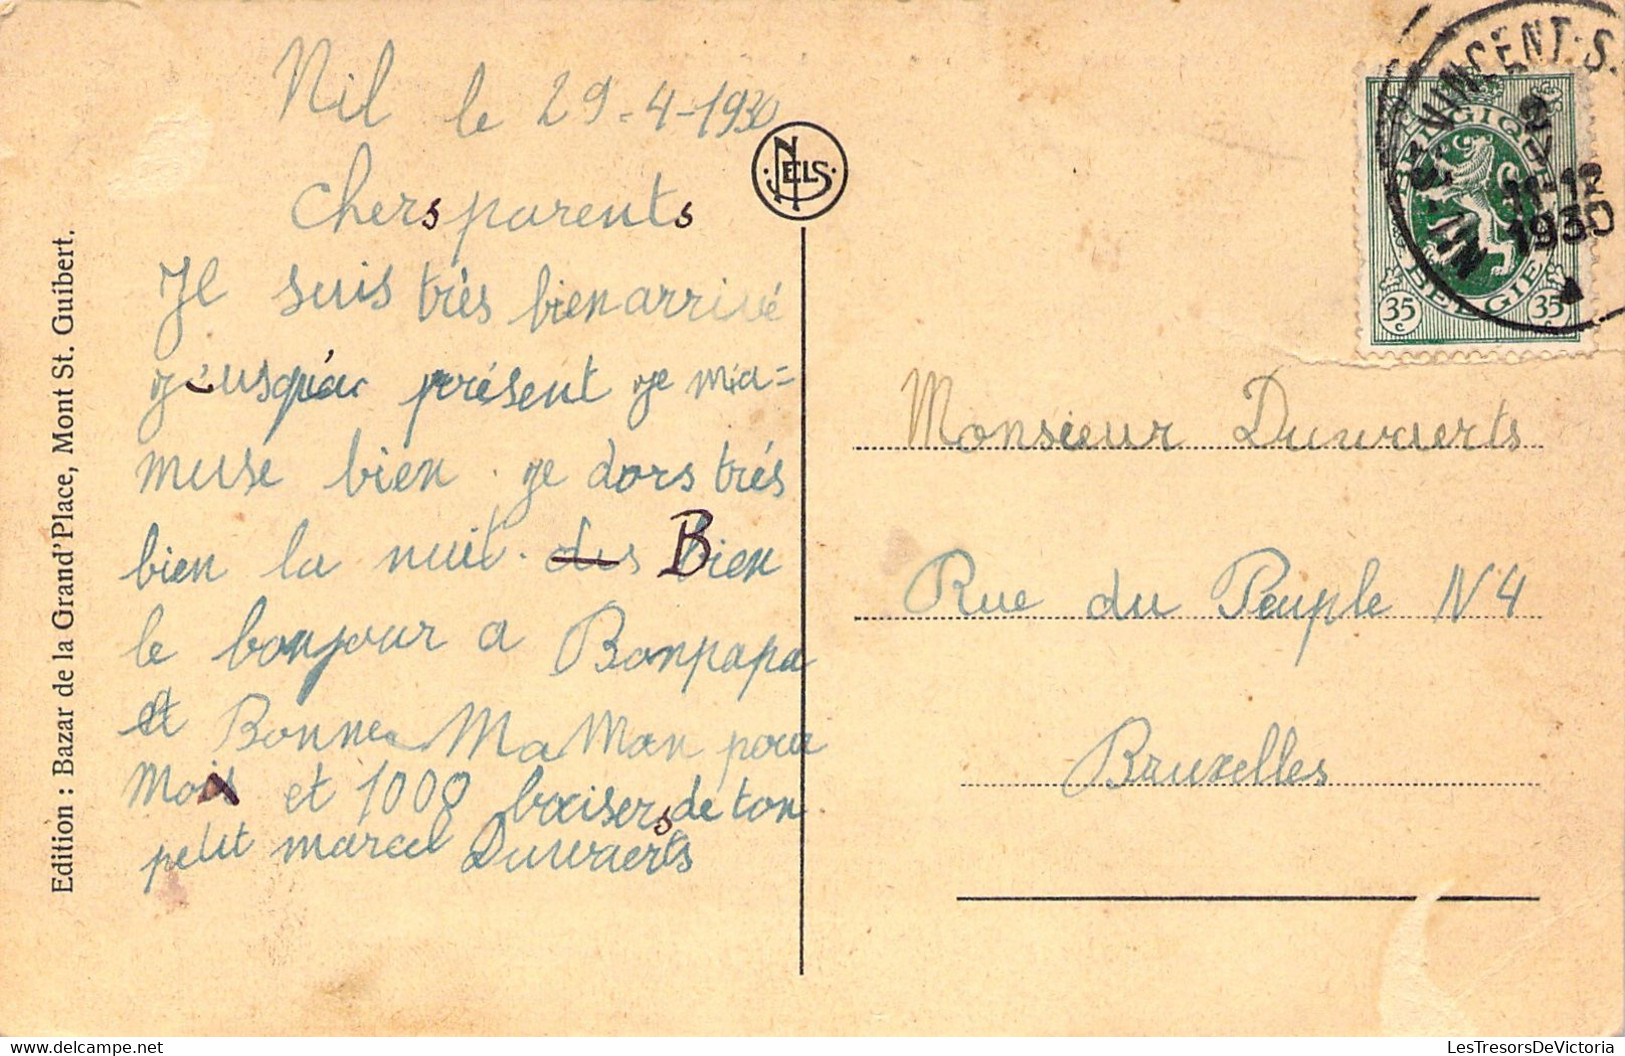 Nil le 29-4-1930
Chers parents
Je suis très bien arrivé
j'eusqu'ac présent je m'a=
muse bien. je dors très
bien la nuit. dis Bien
le bonjour a Bonpapa
et Bonne MaMan pour
Moi et 1000 baisers de ton
petit marcel Duwaerts
NELS
Edition : Bazar de la Grand'Place, Mont St. Guibert.
NIL-ST-VINCENT-S.
11-12
1930
BELGIQUE
BELGIE
35 c
35 c
Monsieur Duwaerts
Rue du Peuple N 4
Bruxelles
LesTresorsDeVictoria
https://www.delcampe.net